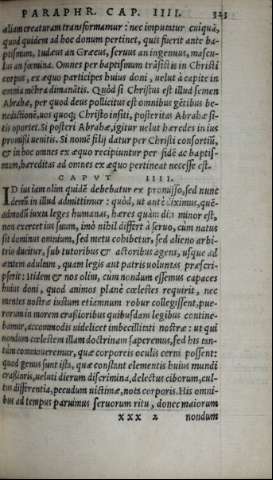 PARAPHR. CAP. IIII. 323
aliam creaturam transformamur: nec imputatur cuiquã,
quod quidem ad hoc donum pertinet, quis fuerit ante ba-
ptismum, Iudæus an Græcus, seruus an ingenuus, mascu-
lus an fœmina. Omnes per baptismum trãsistis in Christi
corpus, ex æquo participes huius doni, à capite in
omnia mẽbra dimanãtis. Quòd si Christus est illud semen
Abrahæ, per quod deus pollicitus est omnibus gẽtibus be-
nedictionẽ, uos quoq; Christo insiti, posteritas Abrahæ si-
tis oportet. Si posteri Abrahæ, igitur uelut hæredes in ius
promissi uenitis. Si nomẽ filij datur per Christi consortiũ,
& in hoc omnes ex æquo recipiuntur per fidẽ ac baptis-
mum, hæreditas ad omnes ex æquo pertineat necesse est.
CAPVT IIII.
ID ius iam olim quidẽ debebatur ex promisso, sed nunc
demũ in illud admittimur: quòd, ut antè diximus, quẽ-
admodũ iuxta leges humanas, hæres quàm diu minor est,
non exercet ius suum, imò nihil differt à seruo, cùm natus
sit dominus omnium, sed metu cohibetur, sed alieno arbi-
trio ducitur, sub tutoribus & actoribus agens, usque ad
ætatem adultam, quam legis aut patris uoluntas præscri-
pserit: itidem & nos olim, cùm nondum essemus capaces
huius doni, quod animos planè cœlestes requirit, nec
mentes nostræ iustum etiamnum robur collegissent, pue-
rorum in morem crassioribus quibusdam legibus contine-
bamur, accommodis uidelicet imbecillitati nostræ: ut qui
nondum cœlestem illam doctrinam saperemus, sed his tan-
tùm commoueremur, quæ corporeis oculis cerni possent:
quod genus sunt ista, quæ constant elementis huius mundi
crassioris, ueluti dierum discrimina, delectus ciborum, cul-
tus differentia, pecudum uictimæ, nota corporis. His omni-
bus ad tempus paruimus seruorum ritu, donec maiorum
xxx 2 nondum